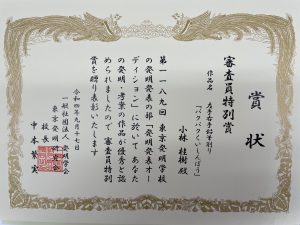 賞状
審査員特別賞
作品名 左手右手鉛筆削り
「パクパクくいしんぼう」
小林 桂樹 殿
第一一八九回 東京発明学校
の発明発表の部「発明発表オー
ディション」に於いて あなた
の発明・考案の作品が優秀と認
められましたので 審査員特別
賞を贈り表彰いたします
令和四年九月十七日
一般社団法人 発明学会
東京発明学校
校長 中本繁実